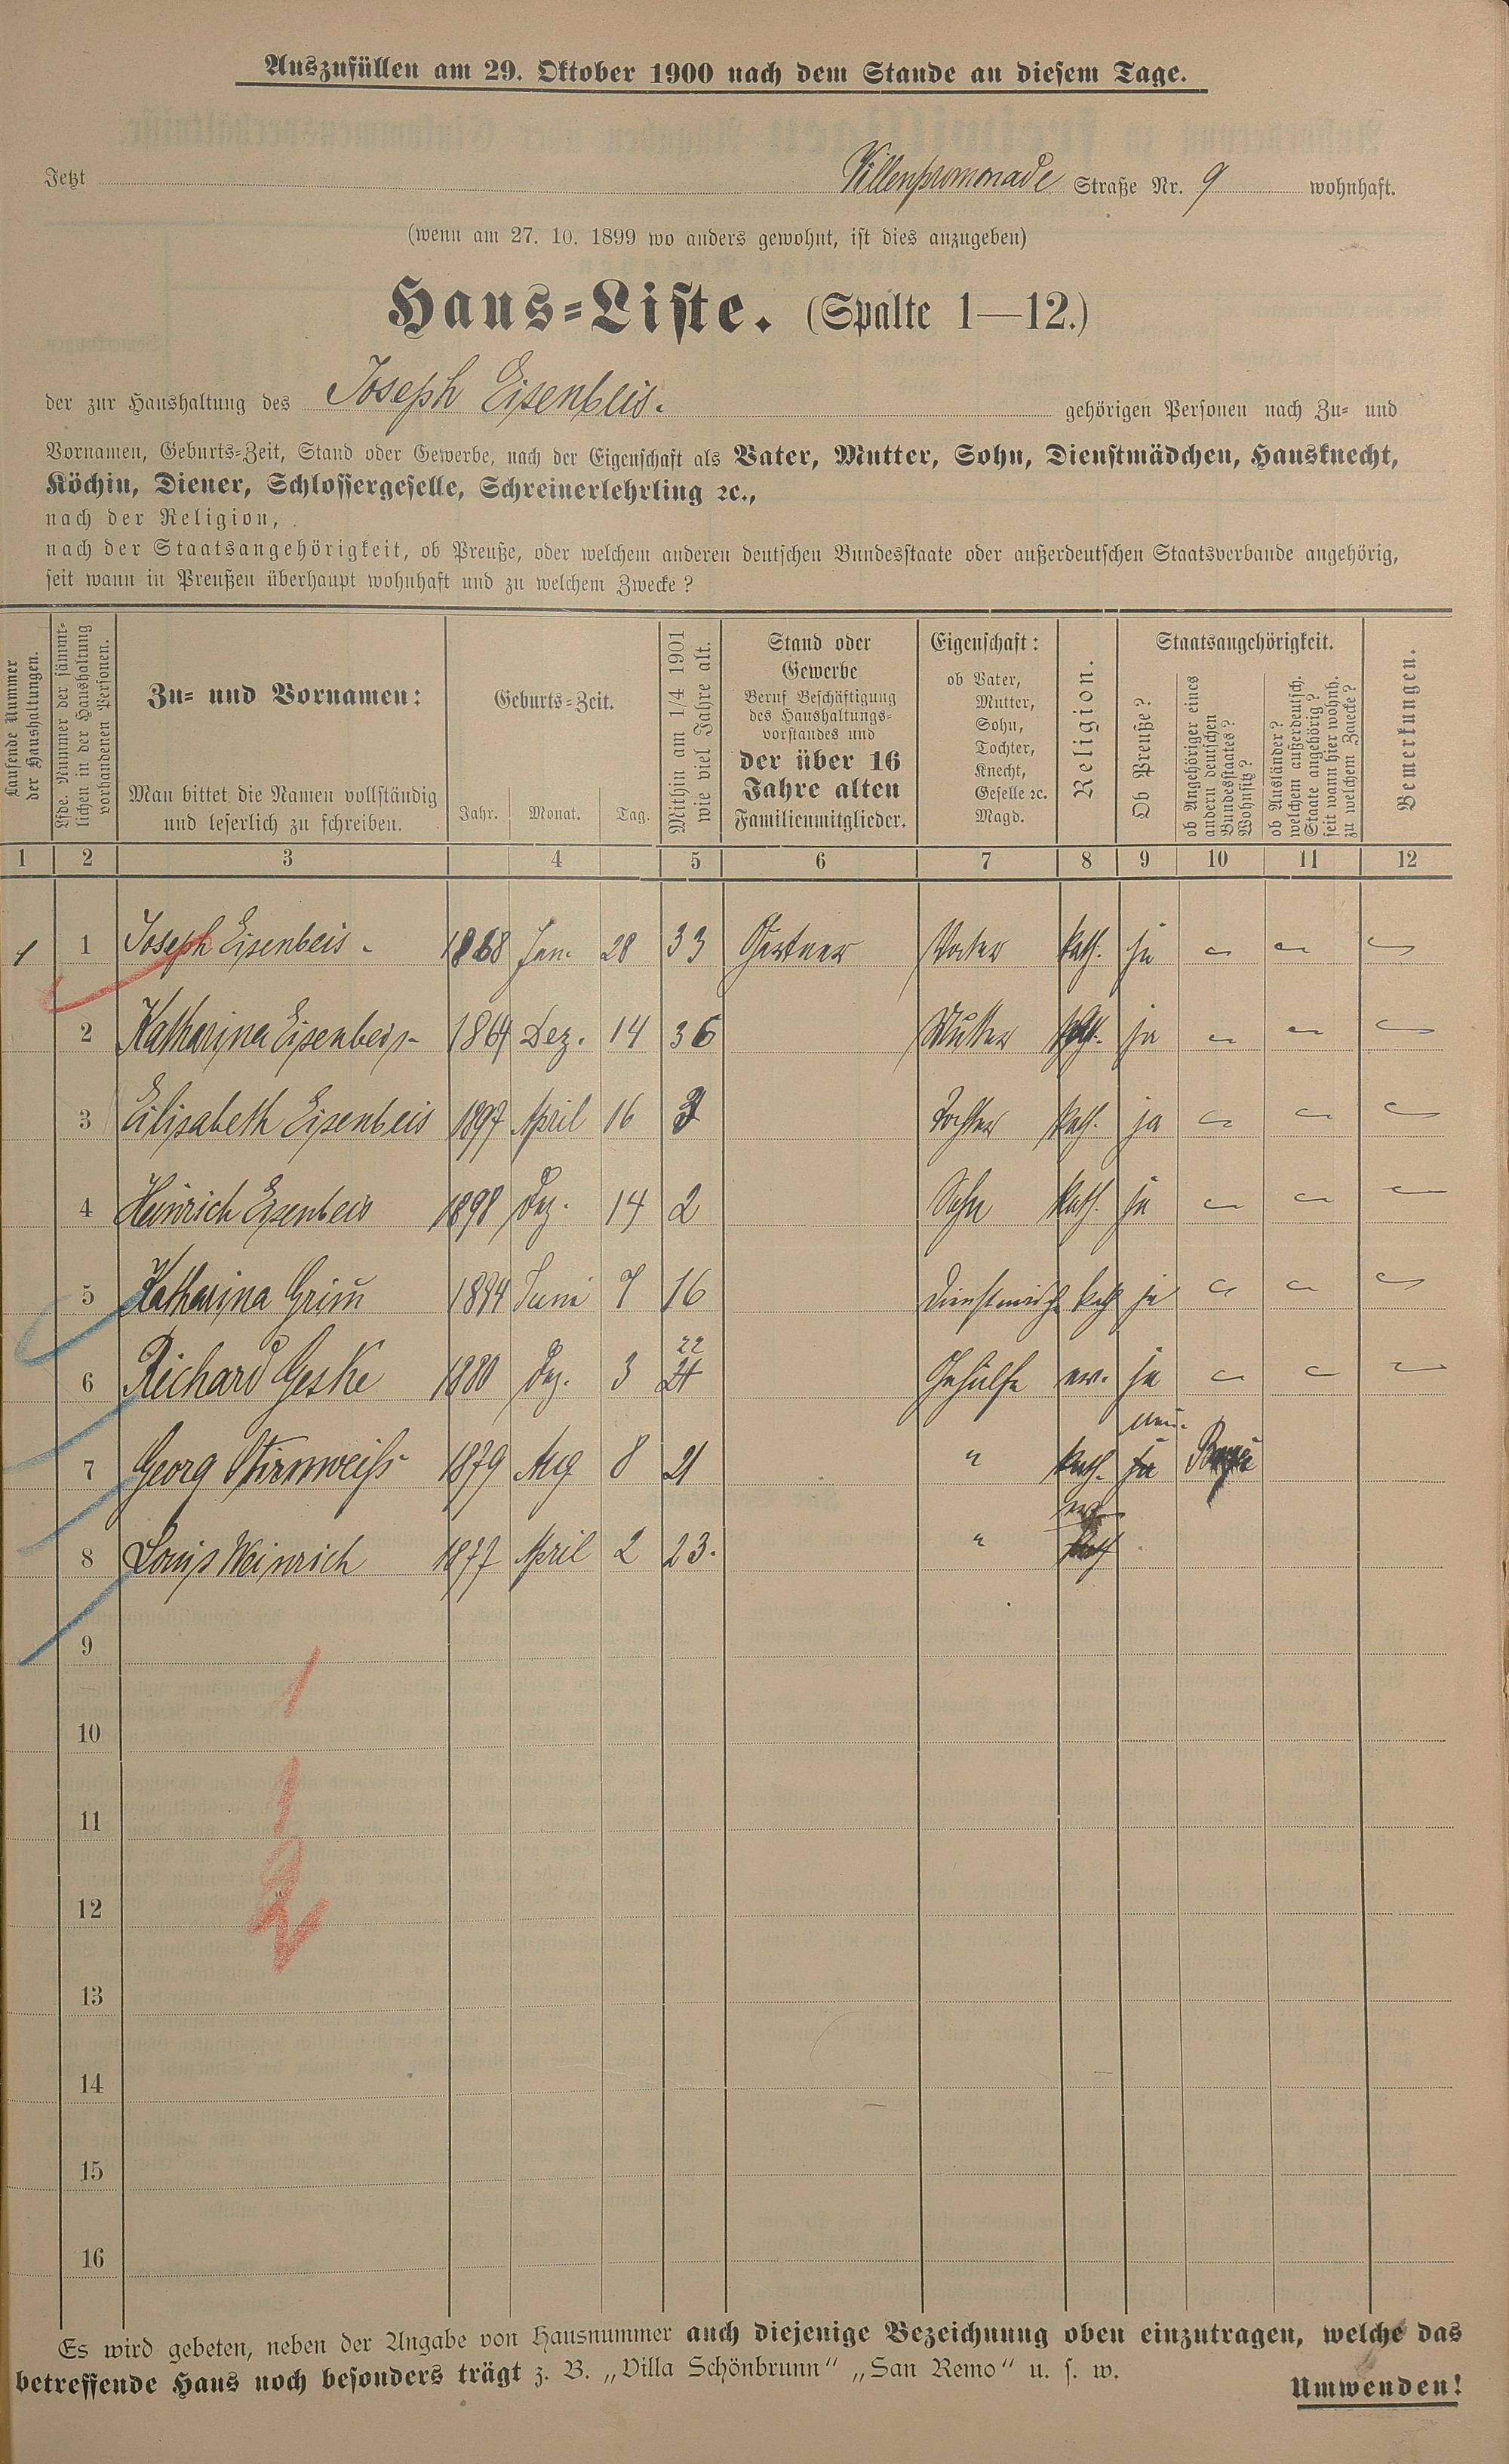 Auszufüllen am 29. Oktober 1900 nach dem Stande an diesem Tage.
Jetzt Villenpromenade Straße Nr. 9 wohnhaft.
(wenn am 27. 10. 1899 wo anders gewohnt, ist dies anzugeben)
Haus-Liste. (Spalte 1—12.)
der zur Haushaltung des Joseph Eisenbeis. gehörigen Personen nach Zu- und
Vornamen, Geburts-Zeit, Stand oder Gewerbe, nach der Eigenschaft als Vater, Mutter, Sohn, Dienstmädchen, Hausknecht,
Köchin, Diener, Schlossergeselle, Schreinerlehrling ꝛc.,
nach der Religion,
nach der Staatsangehörigkeit, ob Preuße, oder welchem anderen deutschen Bundesstaate oder außerdeutschen Staatsverbande angehörig,
seit wann in Preußen überhaupt wohnhaft und zu welchem Zwecke?
Laufende Nummer
der Haushaltungen.
Lfde. Nummer der sämmt-
lichen in der Haushaltung
vorhandenen Personen.
Zu- und Vornamen:
Man bittet die Namen vollständig
und leserlich zu schreiben.
Geburts-Zeit.
Jahr. Monat. Tag.
Mithin am 1/4 1901
wie viel Jahre alt.
Stand oder
Gewerbe
Beruf Beschäftigung
des Haushaltungs-
vorstandes und
der über 16
Jahre alten
Familienmitglieder.
Eigenschaft:
ob Vater,
Mutter,
Sohn,
Tochter,
Knecht,
Geselle ꝛc.
Magd.
Religion.
Staatsangehörigkeit.
Ob Preuße?
ob Angehöriger eines
andern deutschen
Bundesstaates?
Wohnsitz?
ob Ausländer?
welchem außerdeutsch.
Staate angehörig?
seit wann hier wohnh.
zu welchem Zwecke?
Bemerkungen.
1 2 3 4 5 6 7 8 9 10 11 12
1 1 Joseph Eisenbeis. 1868 Jan. 28 33 Gärtner Vater kath. ja
2 Katharina Eisenbeis 1864 Dez. 14 36 Mutter kath. ja
3 Elisabeth Eisenbeis 1897 April 16 3 Tochter kath. ja
4 Heinrich Eisenbeis 1898 Dez. 14 2 Sohn kath. ja
5 Katharina Grim̄ 1884 Juni 7 16 Dienstmädch kath ja
22
6 Richard Geske 1880 Dez. 3 Gehülfe ev. ja
nein.
7 Georg Stirnweiß 1879 Aug 8 21 " kath. ja
ev.
8 Louis Weinrich 1877 April 2 23. " kath
9
10
11
12
13
14
15
16
Es wird gebeten, neben der Angabe von Hausnummer auch diejenige Bezeichnung oben einzutragen, welche das
betreffende Haus noch besonders trägt z. B. „Villa Schönbrunn“ „San Remo“ u. s. w.
Umwenden!